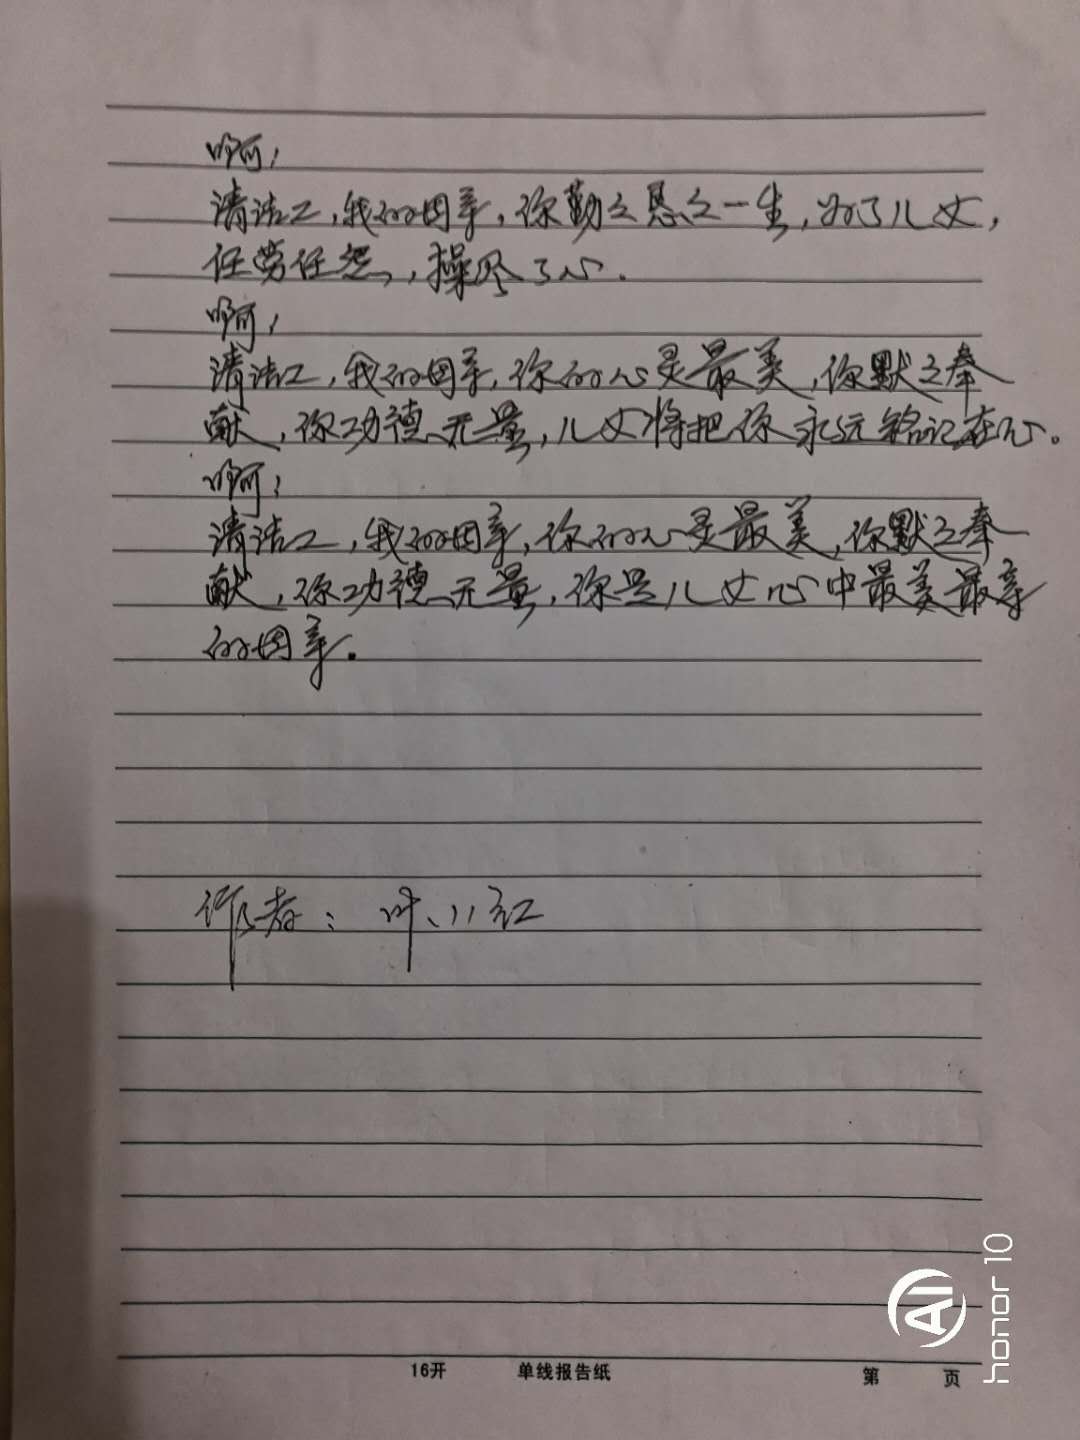 啊!
清洁工,我的母亲,你勤勤恳恳一生,为了儿女,
任劳任怨,操尽了心.
啊!
清洁工,我的母亲,你的心灵最美,你默默奉
献,你功德无量,儿女将把你永远铭记在心。
啊!
清洁工,我的母亲,你的心灵最美,你默默奉
献,你功德无量,你是儿女心中最美最亲
的母亲.
作者: 叶小红
16开 单线报告纸 第 页
AI
honor 10